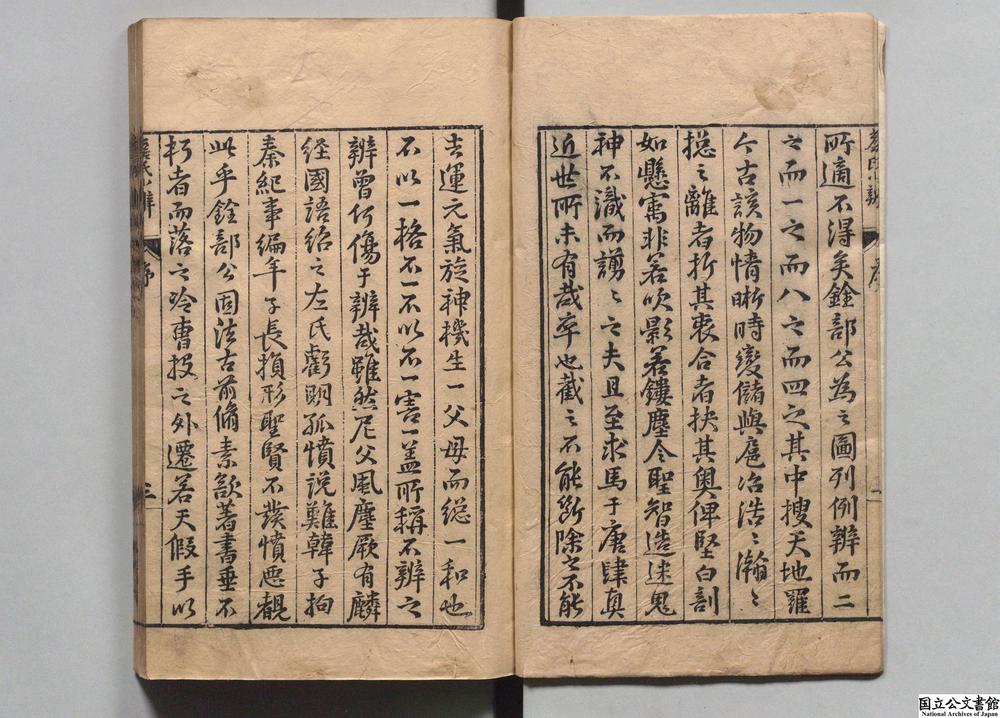 所適不得矣銓部公為之圖列例辨而二
之而一之而八之而四之其中搜天地羅
今古該物情晰時變儲與扈冶浩〻瀚〻
摠之離者折其衷合者抉其奧俾堅白剖
如懸寓非若吹影若鏤塵令聖智造迷鬼
神不識而謭〻之夫且至求馬于唐肆真
近世所未有哉卒也截之不能斷除之不能
去運元氣旋神機生一父母而總一和也
不以一格不一不以不一害一盖所稱不辨之
辨曾何傷于辨哉雖然尼父風塵厥有麟
經國語紹之左氏虧明孤憤說難韓子拘
秦紀事編年子長損形聖賢不發憤惡覩
此乎銓部公固法古前脩素欲著書垂不
朽者而落之冷曹投之外遷若天假手以
序
二
序
三
国立公文書館
National Archives of Japan